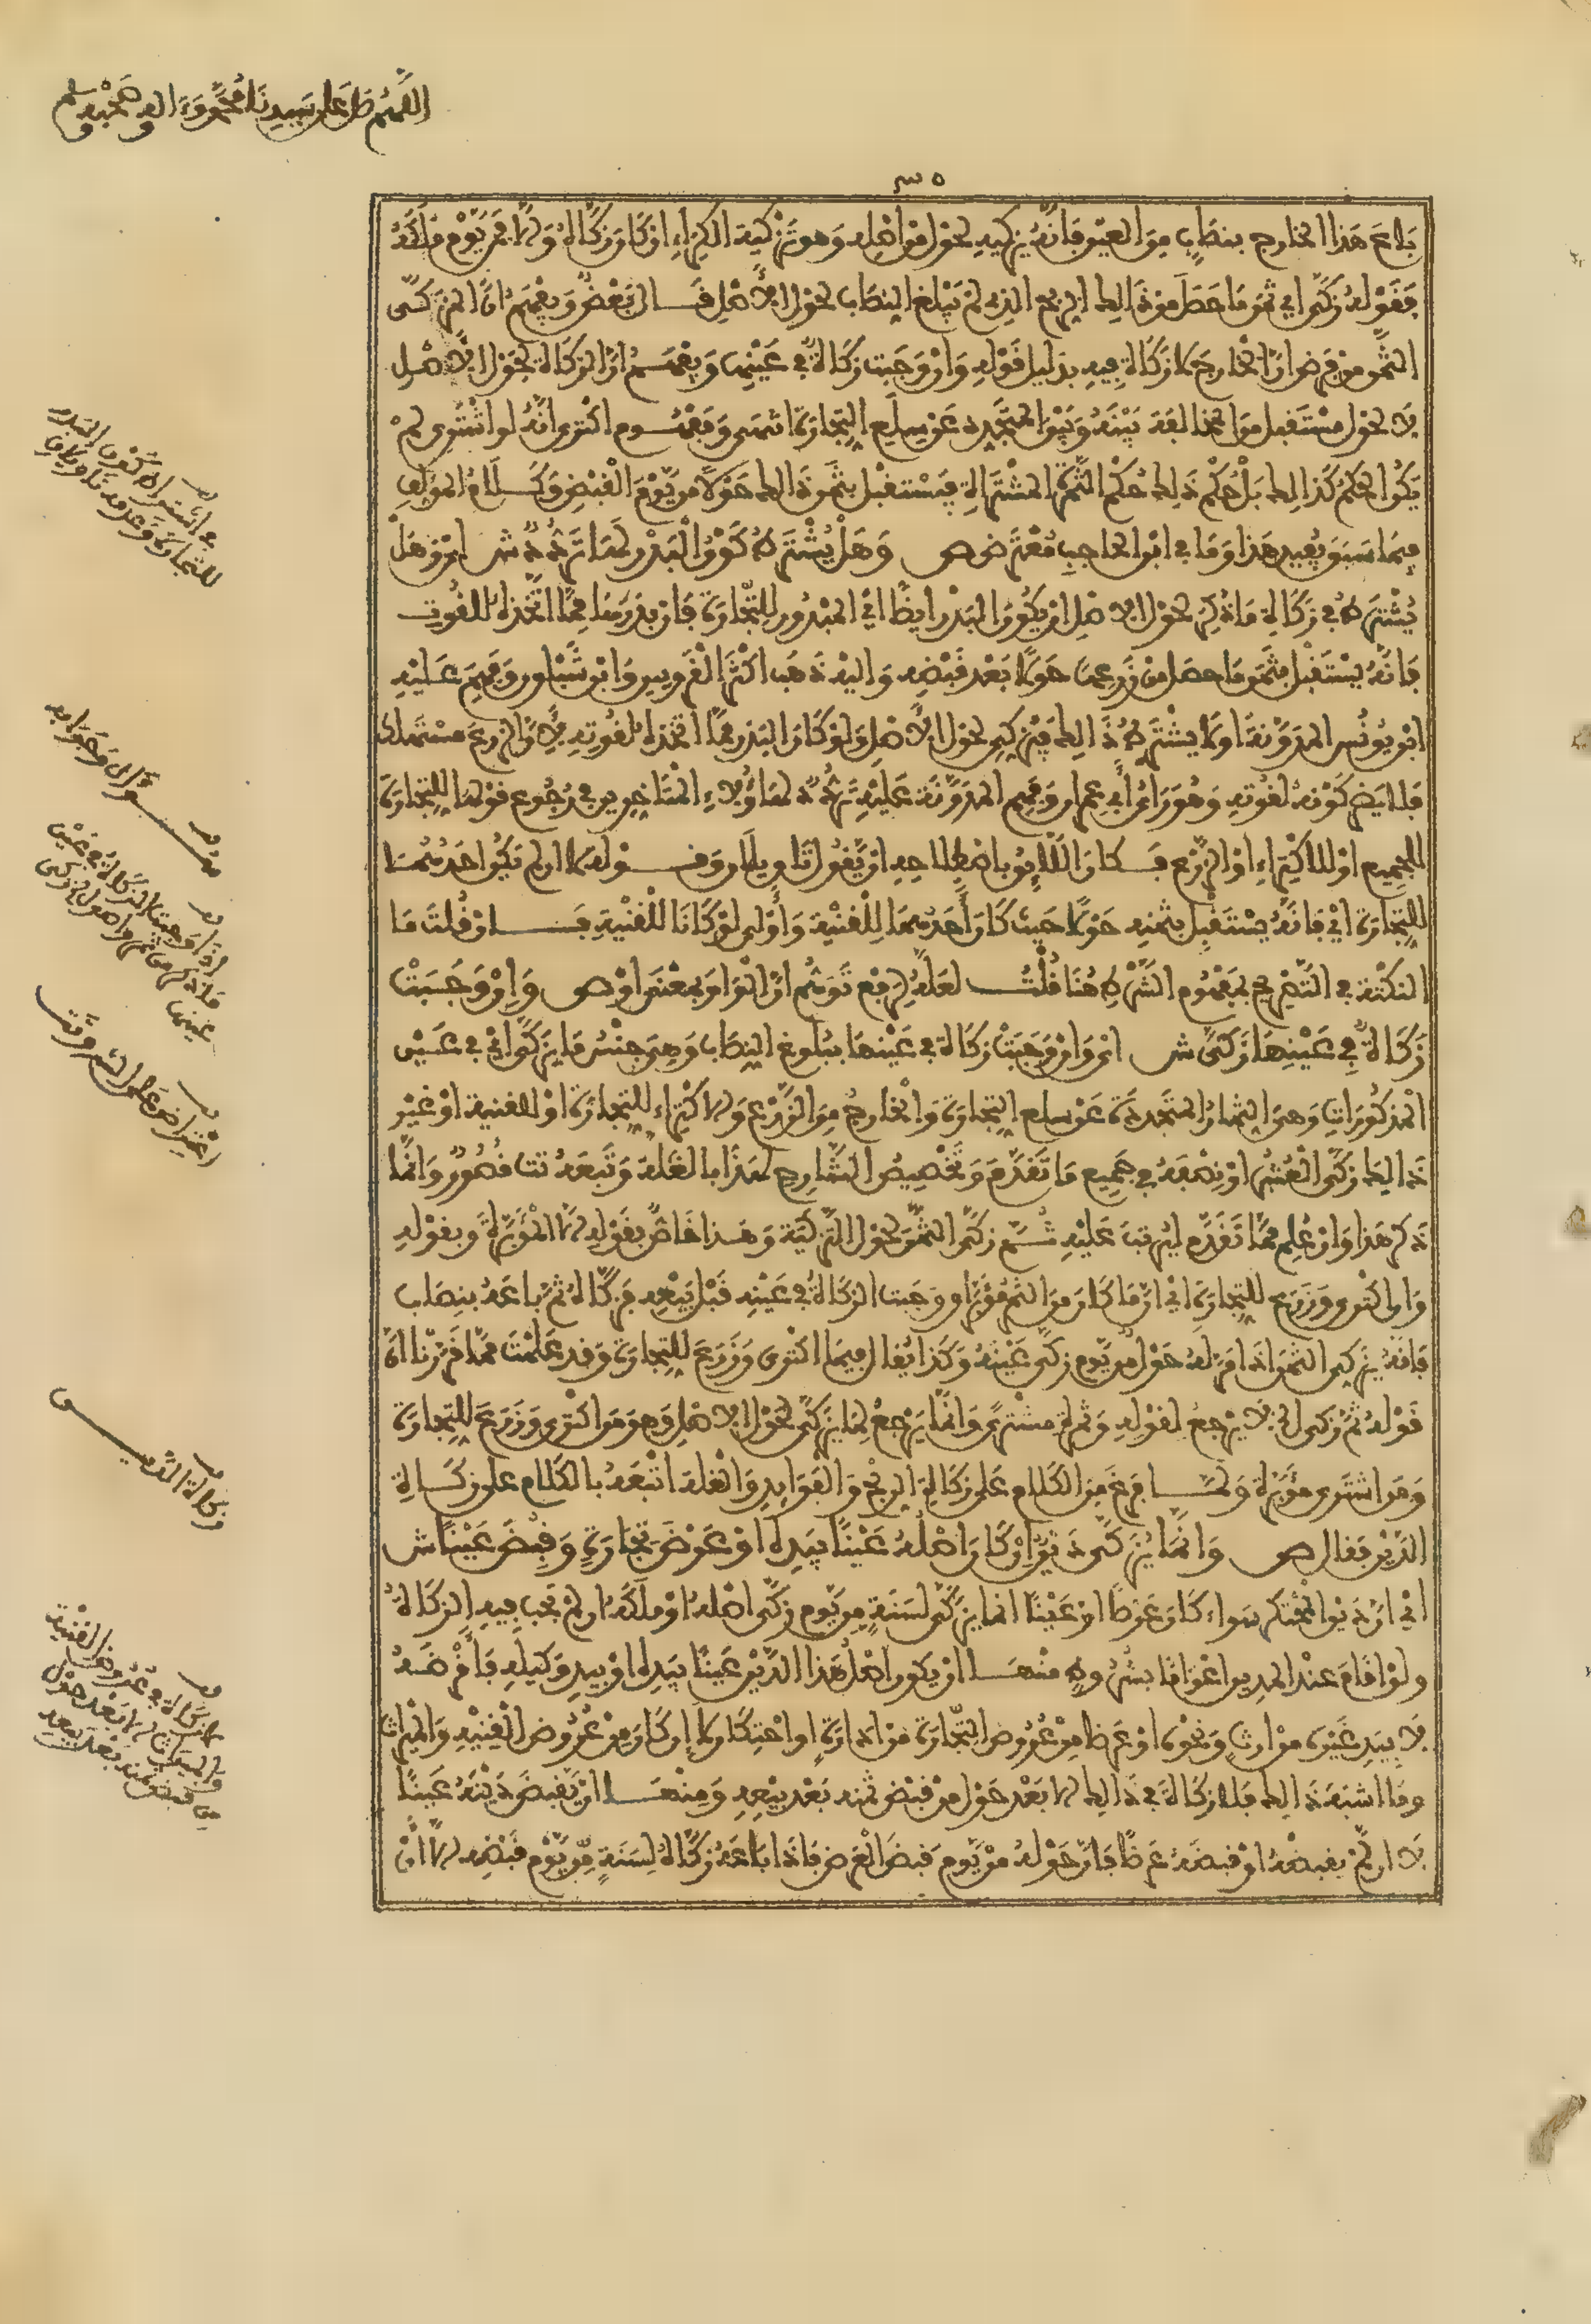 اللهم صل على سيدنا محمد وءاله وصحبه وسلم
باع هذا الخارج بنصاب من العين فإنه يزكيه لحول من اصله وهو تزكية الكراء ان كان زكاه والا فمن يوم ملكه
فقوله زكى اي ثمن ما حصل من ذلك الزرع الذي لم يبلغ النصاب لحول الاصل قال بعض ويفهم ان المزكى
الثمن من فرض ان الخارج لا زكاة فيه بدليل قوله وان وجبت زكاة في عينها ويفهم ان الزكاة لحول الاصل
لا لحول مستقبل من المخالفة بينه وبين المتجدد عن سلع التجارة انتهى ومفهوم اكترى انه لو اشترى لم
يكن الحكم كذلك بل حكم ذلك حكم الثمرة المشتراة فيستقبل بثمن ذلك حولا من يوم القبض وكلام المؤلف
فيما سبق يفيد هذا وما في ابن الحاجب معترض ص وهل يشترط كون البذر لها تردد ش اي وهل
يشترط في زكاة ما ذكر لحول الاصل ان يكون البذر ايضا اي المبذور للتجارة فإن بذرها مما اتخذه للقوت
فإنه يستقبل بثمن ما حصل من زرعها حولا بعد قبضه واليه ذهب اكثر القرويين وابن شبلون وفهم عليه
ابن يونس المدونة او لا يشترط ذلك فيزكي لحول الاصل ولو كان البذر مما اتخذه لقوته لان الزرع مستهلك
فلا يضر كونه لقوته وهو رأي ابي عمران وفهم المدونة عليه تردد لهاؤلاء المتأخرين في رجوع قولها للتجارة
للجميع او للاكتراء او الزرع فكان اللائق باصطلاحه ان يقول تاويلان وقوله لا ان لم يكن احدهما
للتجارة اي فإنه يستقبل بثمنه حولا حيث كان أحدهما للقنية وأولى لو كانا للقنية فإن قلت ما
النكتة في التصريح بمفهوم الشرط هنا قلت لعله لرفع توهم ان الواو بمعنى او ص وإن وجبت
زكاة في عينها زكى ش اي وان وجبت زكاة في عينها ببلوغ النصاب وهي جنس ما يزكى اي في عين
المذكورات وهي الثمار المتجددة عن سلع التجارة والخارج من الزرع والاكتراء للتجارة او للقنية او غير
ذلك زكى العشر او نصفه في جميع ما تقدم وتخصيص الشارح لهذا بالغلة وتبعه تت قصور وانما
ذكر هذا وان علم مما تقدم ليرتب عليه ثم زكى الثمن لحول التزكية وهذا خاص بقوله الا المؤبرة وبقوله
وان اكترى وزرع للتجارة اي ان ما كان من الثمر مؤبرا ووجبت الزكاة في عينه قبل بيعه فزكاه ثم باعه بنصاب
فإنه يزكي الثمن اذا مر له حول من يوم زكى عينه وكذا يقال فيما اكترى وزرع للتجارة وقد علمت مما قررنا ان
قوله ثم زكى الخ لا يرجع لقوله وثمر مشترى وانما يرجع لما يزكى لحول الاصل وهو من اكترى وزرع للتجارة
ومن اشترى مؤبرة ولما فرغ من الكلام على زكاة الربح والفوائد والغلة اتبعه بالكلام على زكاة
الدين فقال ص وانما يزكى دين إن كان اصله عينا بيده او عرض تجارة وقبض عينا ش
اي ان دين المحتكر سواء كان عرضا او عينا انما يزكى لسنة من يوم زكى اصله او ملكه ان لم تجب فيه الزكاة
ولو اقام عند المدين اعواما بشروط منها ان يكون اصل هذا الدين عينا بيده او بيد وكيله فأقرضه
لا بيد غيره من ارث ونحوه او عرضا من عروض التجارة من ادارة او احتكار لا إن كان من عروض القنية والميراث
وما اشبه ذلك فلا زكاة في ذلك الا بعد حول من قبض ثمنه بعد بيعه ومنها ان يقبض دينه عينا
لا ان لم يقبضه او قبضه عرضا فان حوله من يوم قبض العرض فاذا باعه زكاه لسنة من يوم قبضه الا ان
قف
في اشتراط كون البذر
للتجارة وعدمه تاويلان
قف
سؤال وجوابه
قف
اذا وجبت الزكاة في عين
ما ذكر
قف
اعتراض على الشارح وتت
قف
زكاة الدين
قف
لا زكاة في عروض القنية
والميراث الا بعد حول
من قبض ثمنه بعد بيعه